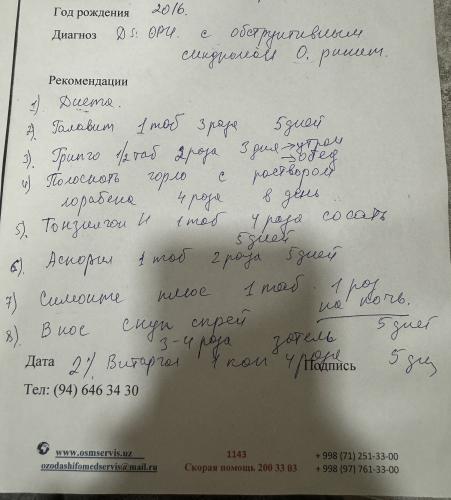 Год рождения 2016.
Диагноз DS: ОРИ. с обструктивным
синдромом О. ринит.
Рекомендации
1) Диета.
2) Галавит 1 таб 3 раза 5 дней
3) Грипго 1/2 таб 2 раза 3 дня → утром
→ обед
4) Полоскать горло с раствором
лорабена 4 раза в день
5) Тонзилгон Н 1 таб 4 раза сосать
5 дней
6) Аспорил 1 таб 2 раза 5 дней
7) Симонте плюс 1 таб. 1 раз
на ночь.
8) В нос снуп спрей 5 дней
3-4 раза затем
Дата 2% Витаргол 1 кап 4 раза Подпись 5 дн
Тел: (94) 646 34 30
www.osmservis.uz 1143 + 998 (71) 251-33-00
ozodashifomedservis@mail.ru Скорая помощь 200 33 03 + 998 (97) 761-33-00